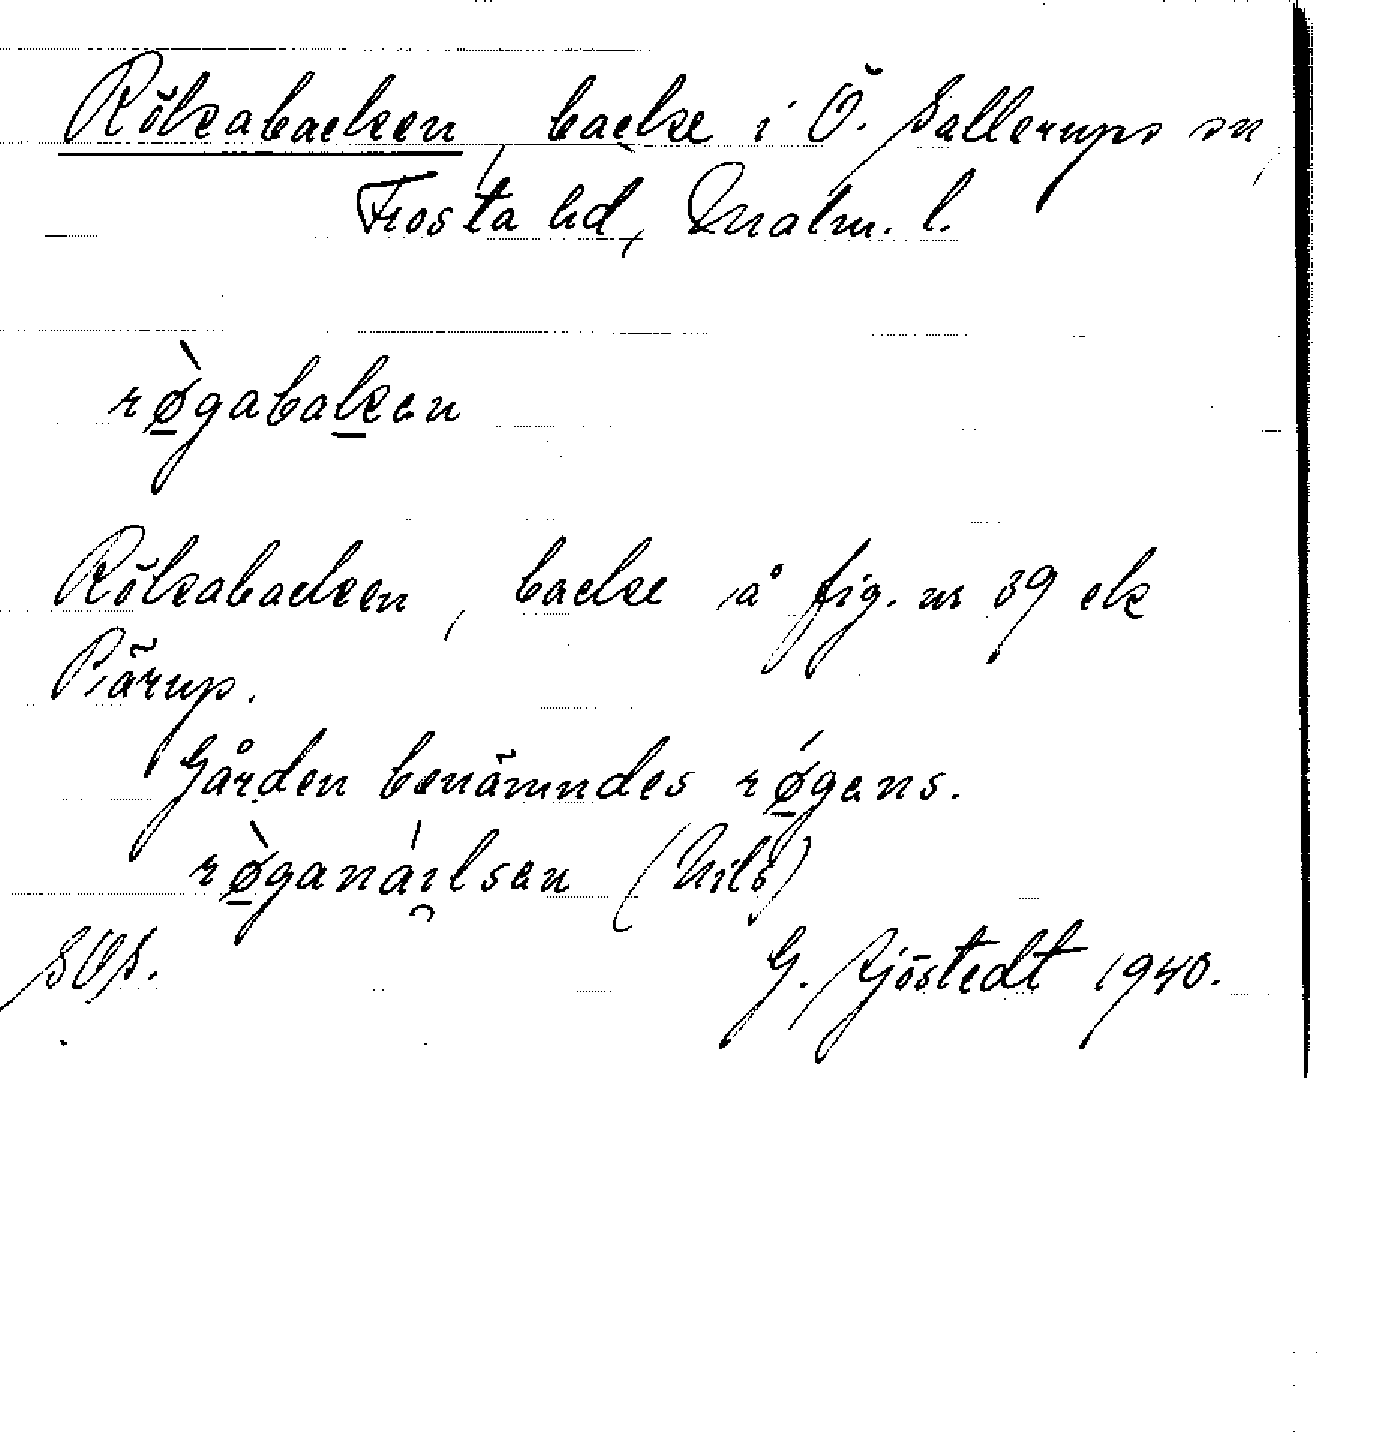 Rökabacken, backe i Ö. Sallerups sn,
Frosta hd, Malm. l.
rø̀gabakɛn
Rökabacken, backe å fig. nr 39 ek
Pärup.
Gården benämndes rǿgɛns.
rø̀ganáɪ̯lsɛn (Nils)
SOS.
G. Sjöstedt 1940.